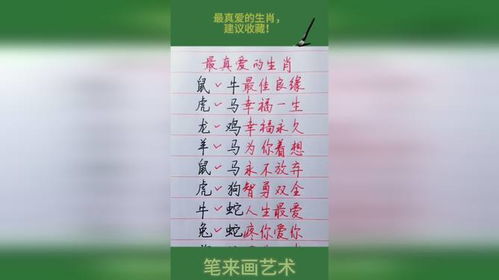 最真爱的生肖,
建议收藏!
最真爱的生肖
鼠✓牛最佳良缘
虎✓马幸福一生
龙✓鸡幸福永久
羊✓马为你着想
鼠✓马永不放弃
虎✓狗智勇双全
牛✓蛇人生最爱
兔✓蛇疼你爱你
笔来画艺术